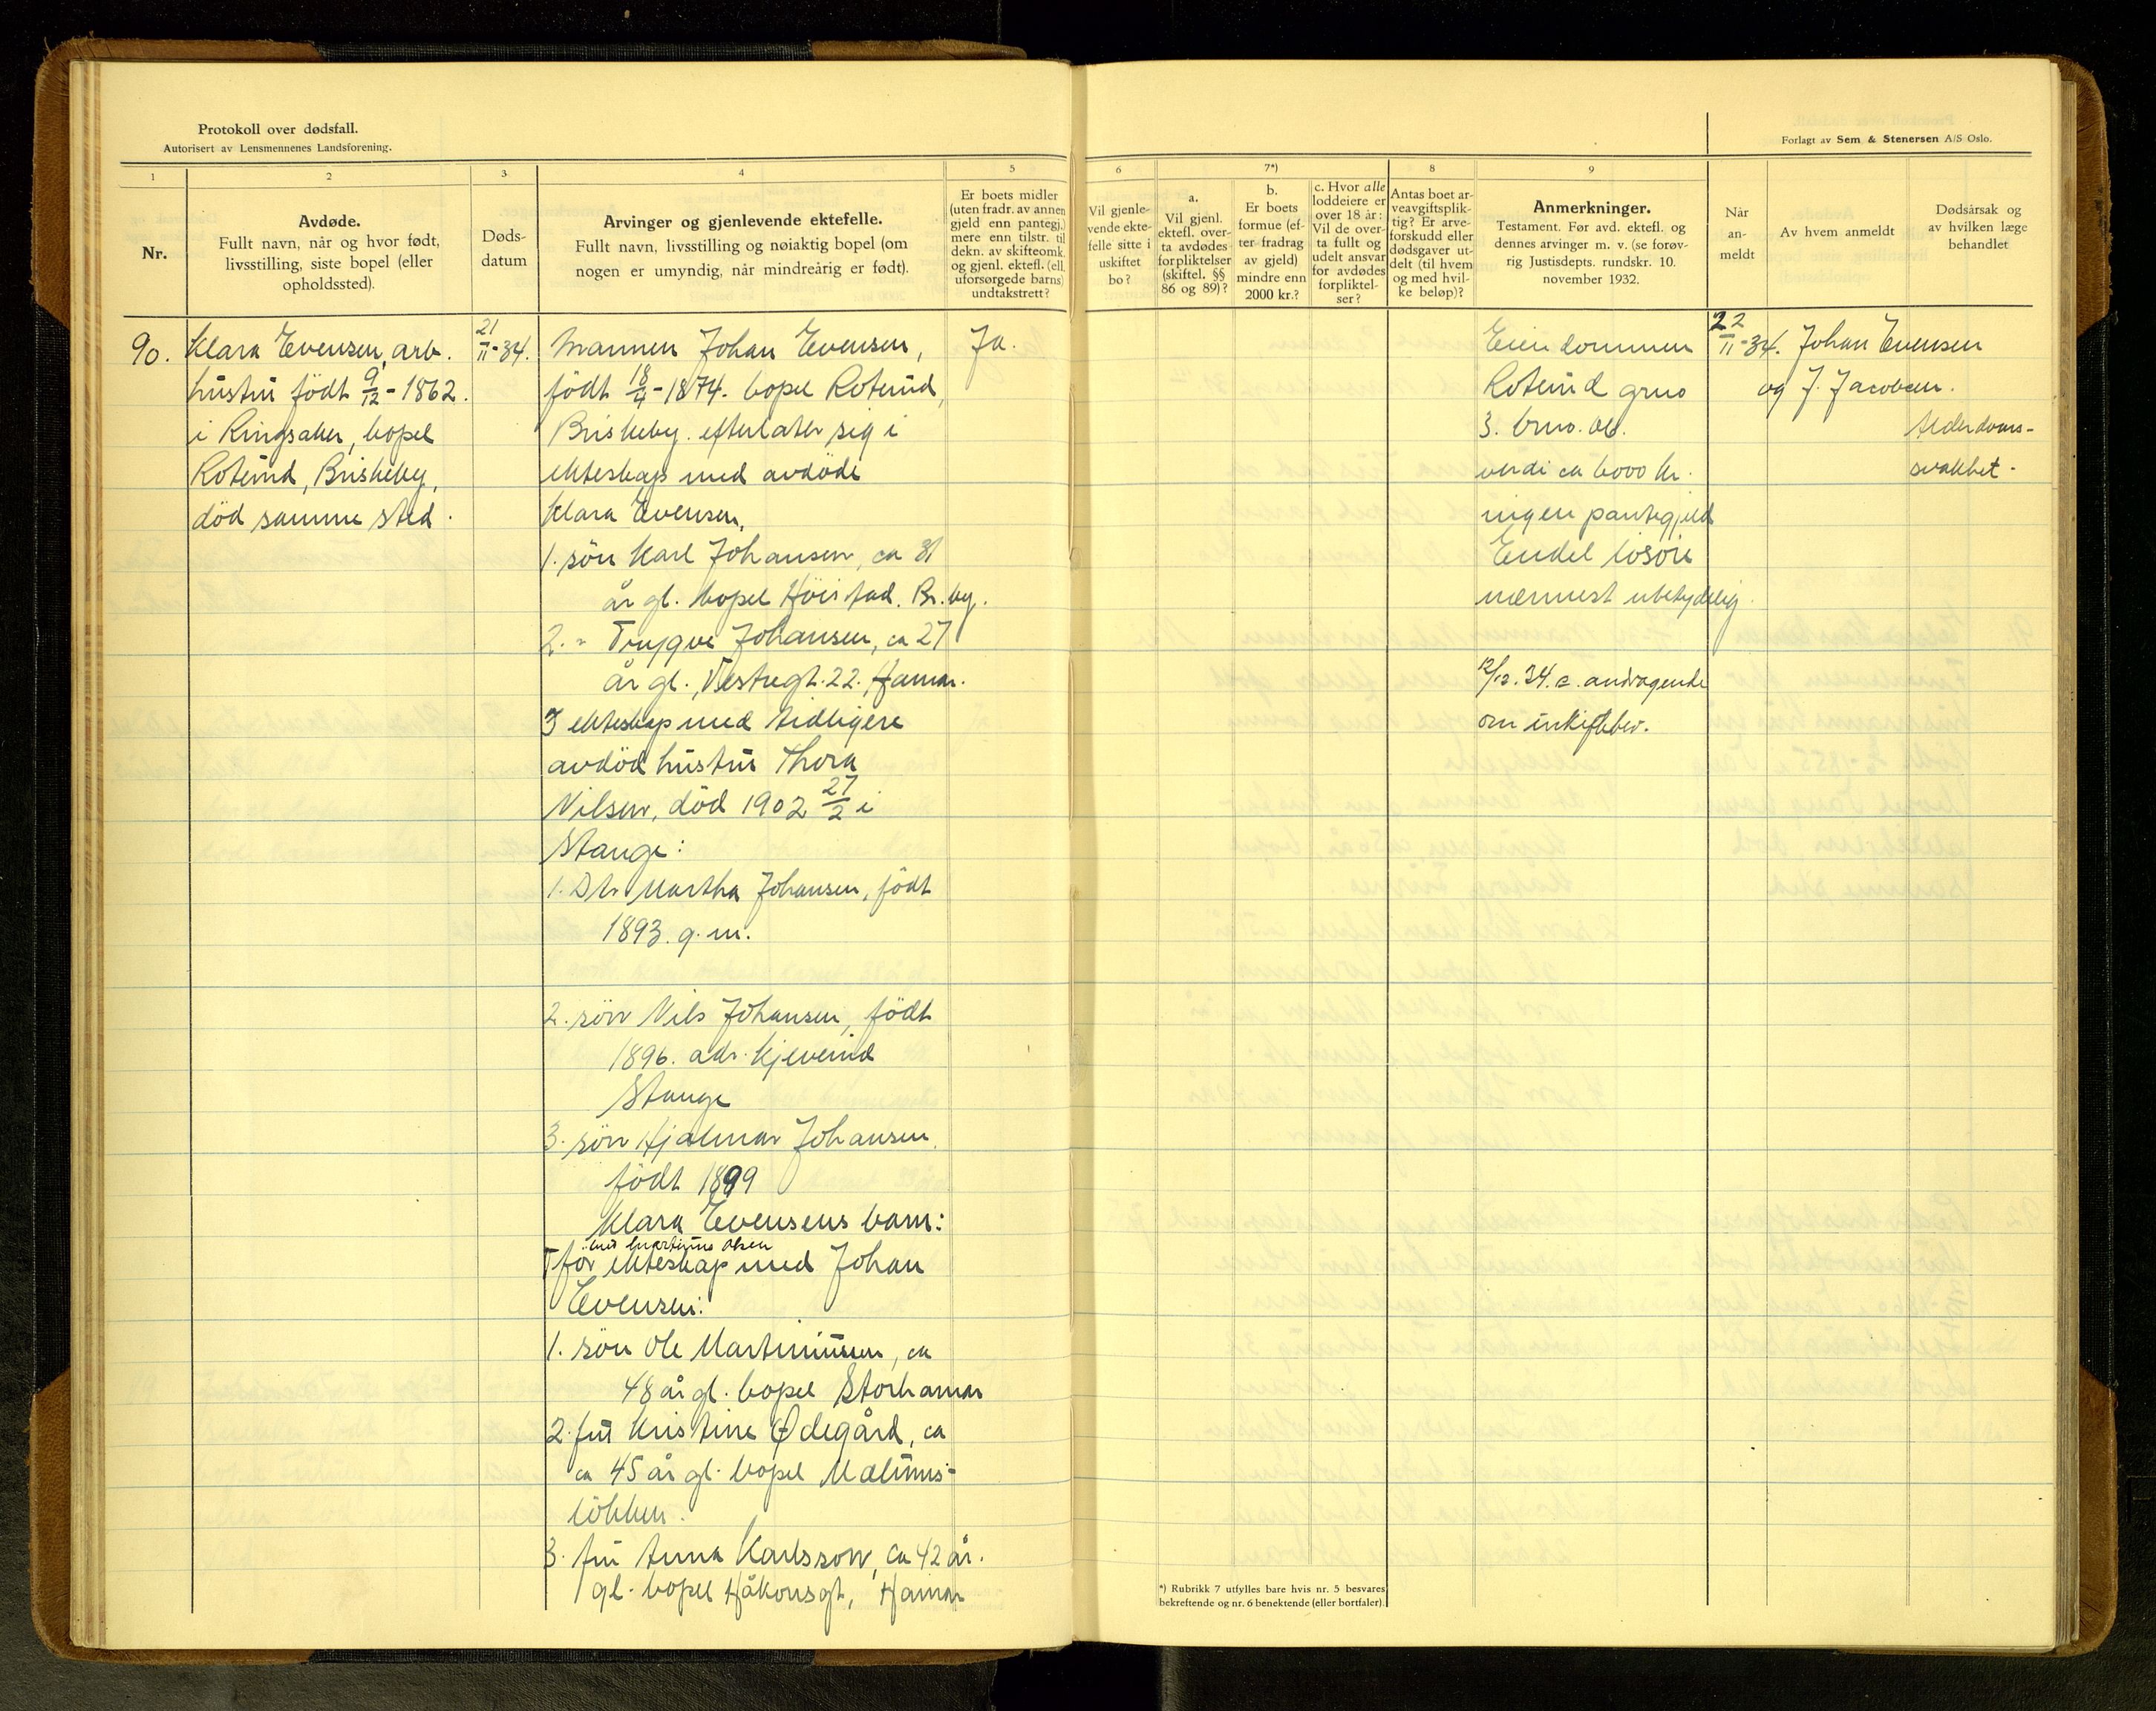 Protokoll over dødsfall.
Autorisert av Lensmennenes Landsforening.
Forlagt av Sem & Stenersen A/S Oslo.
1
2
3
4
5
6
7*)
8
9
Nr.
Avdøde.
Fullt navn, når og hvor født,
livsstilling, siste bopel (eller
opholdssted).
Døds-
datum
Arvinger og gjenlevende ektefelle.
Fullt navn, livsstilling og nøiaktig bopel (om
nogen er umyndig, når mindreårig er født).
Er boets midler
(uten fradr. av annen
gjeld enn pantegj.)
mere enn tilstr. til
dekn. av skifteomk.
og gjenl. ektefl. (ell.
uforsørgede barns)
undtakstrett?
Vil gjenle-
vende ekte-
felle sitte i
uskiftet
bo?
a.
Vil gjenl.
ektefl. over-
ta avdødes
forpliktelser
(skiftel. §§
86 og 89)?
b.
Er boets
formue (ef-
ter fradrag
av gjeld)
mindre enn
2000 kr.?
c. Hvor alle
loddeiere er
over 18 år:
Vil de over-
ta fullt og
udelt ansvar
for avdødes
forpliktel-
ser?
Antas boet ar-
veavgiftsplik-
tig? Er arve-
forskudd eller
dødsgaver ut-
delt (til hvem
og med hvil-
ke beløp)?
Anmerkninger.
Testament. Før avd. ektefl. og
dennes arvinger m. v. (se forøv-
rig Justisdepts. rundskr. 10.
november 1932.
Når
an-
meldt
Av hvem anmeldt
Dødsårsak og
av hvilken læge
behandlet
90.
Klara Evensen, arb.
hustru født 9/12-1862.
i Ringsaker, bopel
Roterud, Briskeby,
död samme sted.
21/11-34.
Mannen Johan Evensen,
født 18/4-1874. bopel Roterud,
Briskeby. efterlater sig i
ekteskap med avdöde
Klara Evensen,
1. sön Karl Johansen, ca 31
år gl. bopel Höistad. Br.by.
2. " Trygve Johansen, ca 27
år gl., Vestregt. 22. Hamar.
I ekteskap med tidligere
avdöd hustru Thora
Nilsen, död 1902 27/2 i
Stange:
1. Dtr. Martha Johansen, födt
1893. g. m.
2. sön Nils Johansen, födt
1896. adr. Kjeverud
Stange
3. sön Hjalmar Johansen.
födt 1899
Klara Evensens barn:
med Martinus Olsen
I för ekteskap med Johan
Evensen:
1. sön Ole Martinussen, ca
48 år gl. bopel Storhamar
2. fru Kristine Ødegård, ca
ca 45 år gl. bopel
lökken.
3. fru Anna Karlsson, ca 42 år.
gl. bopel Håkonsgt, Hamar
Ja.
Eiendommen
Roterud grno
3. brno.
verdi ca 6000 kr.
ingen pantegjeld
Endel lösöre
nærmest ubetydelig.
12/12.34. s. andragende
om
22/11-34.
Johan Evensen
og J. Jacobsen.
Alderdoms-
svakhet.
*) Rubrikk 7 utfylles bare hvis nr. 5 besvares
bekreftende og nr. 6 benektende (eller bortfaler).